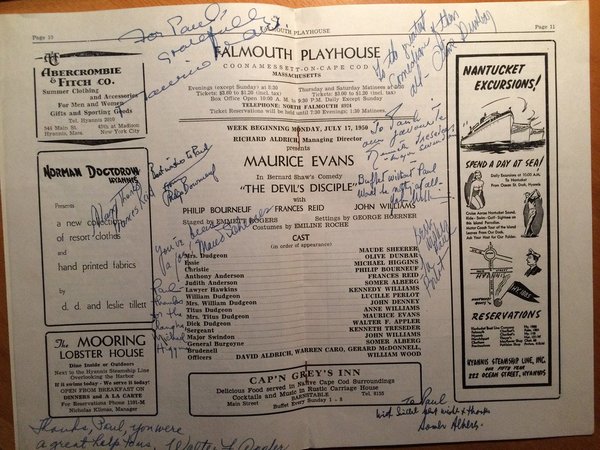 Page 10
FALMOUTH PLAYHOUSE
Page 11
For Paul
Gratefully
Maurice Evans
FALMOUTH PLAYHOUSE
COONAMESSETT-ON-CAPE COD
MASSACHUSETTS
Evenings (except Sunday) at 8:30
Tickets:
Thursday and Saturday Matinees at 2:30
Tickets:
Box Office Open 10:00 A.M. to 9:30 P.M. Daily Except Sunday
TELEPHONE: NORTH FALMOUTH
Ticket Reservations will be held until 7:30 Evenings; 1:30 Matinees
WEEK BEGINNING MONDAY, JULY 17, 1950
RICHARD ALDRICH, Managing Director
presents
MAURICE EVANS
In Bernard Shaw's Comedy
"THE DEVIL'S DISCIPLE"
with
PHILIP BOURNEUF FRANCES REID JOHN WILLIAMS
Staged by EMMETT ROGERS Settings by GEORGE HOERNER
Costumes by EMILINE ROCHE
CAST
(in order of appearance)
Mrs. Dudgeon MAUDE SHEERER
Essie OLIVE DUNBAR
Christie MICHAEL HIGGINS
Anthony Anderson PHILIP BOURNEUF
Judith Anderson FRANCES REID
Lawyer Hawkins SOMER ALBERG
William Dudgeon KENNETH WILLIAMS
Mrs. William Dudgeon LUCILLE PERLOT
Titus Dudgeon JOHN DENNEY
Mrs. Titus Dudgeon ANNE WILLIAMS
Dick Dudgeon MAURICE EVANS
Sergeant WALTER F. APPLER
Major Swindon KENNETH TRESEDER
General Burgoyne JOHN WILLIAMS
Brudenell SOMER ALBERG
Officers DAVID ALDRICH, WARREN CARO, GERARD McDONNELL,
WILLIAM WOOD
CAP'N GREY'S INN
Delicious Food served in Native Cape Cod Surroundings
Cocktails and Music in Rustic Carriage House
BARNSTABLE
Main Street Buffet Every Sunday 1 - 8 Tel. 8155
ABERCROMBIE
& FITCH CO.
Summer Clothing
and Accessories
For Men and Women
Gifts and Sporting Goods
544 Main St. 45th at Madison
Hyannis New York City
NORMAN DOGTDROW
HYANNIS
Presents
a new collection
of resort clothes
and
hand printed fabrics
by
d. d. and leslie tillett
The MOORING
LOBSTER HOUSE
Dine Inside or Outdoors
Next to the Hyannis Steamship Line
Overlooking the Harbor
If it swims today - We serve it today!
OPEN FROM BREAKFAST ON
DINNERS and A LA CARTE
For Reservations Phone 1191-M
Nicholas Klimas, Manager
NANTUCKET
EXCURSIONS!
SPEND A DAY AT SEA!
HYANNIS
RESERVATIONS
HYANNIS STEAMSHIP LINE, INC.
OUR FIFTH YEAR
222 OCEAN STREET, HYANNIS
Best wishes to Paul
Philip Bourneuf
Many thanks
Frances Reid
Maude Scheerer
Paul
thanks
for the
Michael
Higgins
Olive Dunbar
To Paul
Somer Alberg
Thanks, Paul, you were
a great help to us.
Walter F. Appler